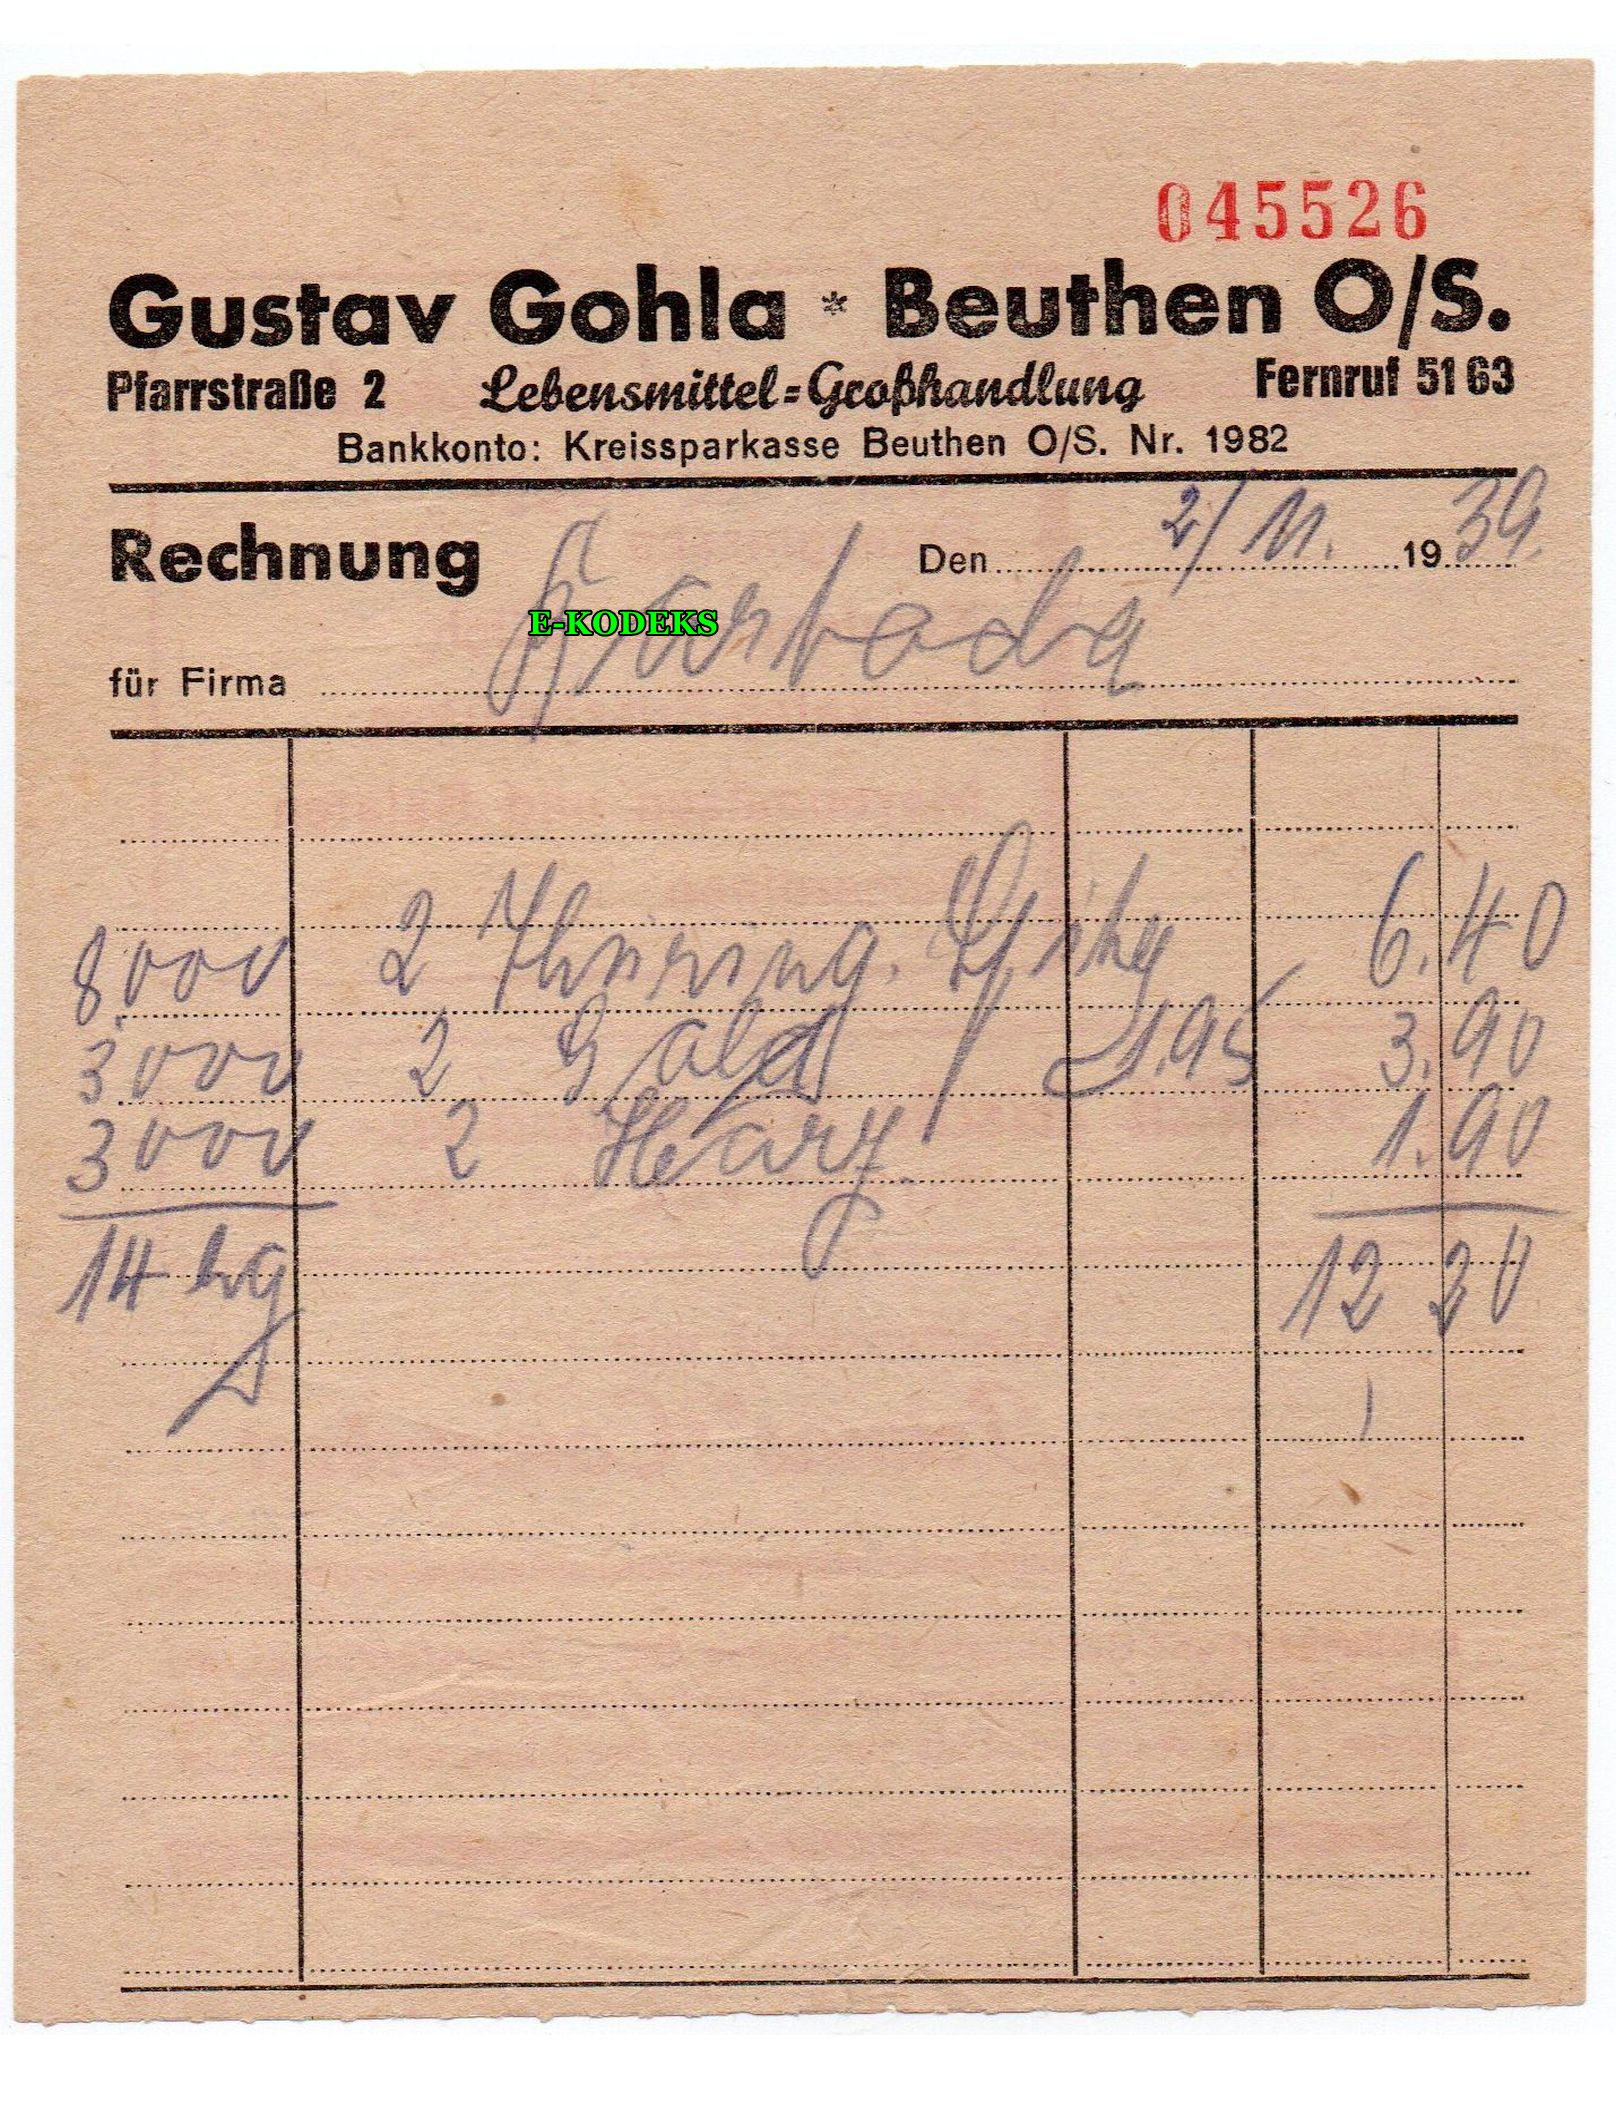 045526
Gustav Gohla * Beuthen O/S.
Pfarrstraße 2 Lebensmittel=Großhandlung Fernruf 5163
Bankkonto: Kreissparkasse Beuthen O/S. Nr. 1982
Rechnung Den 2/11. 1939.
E-KODEKS
für Firma
8.000 2 Thüring. 6.40
3000 2 1.95 3.90
3000 2 Harz. 1.90
14 kg 12 20